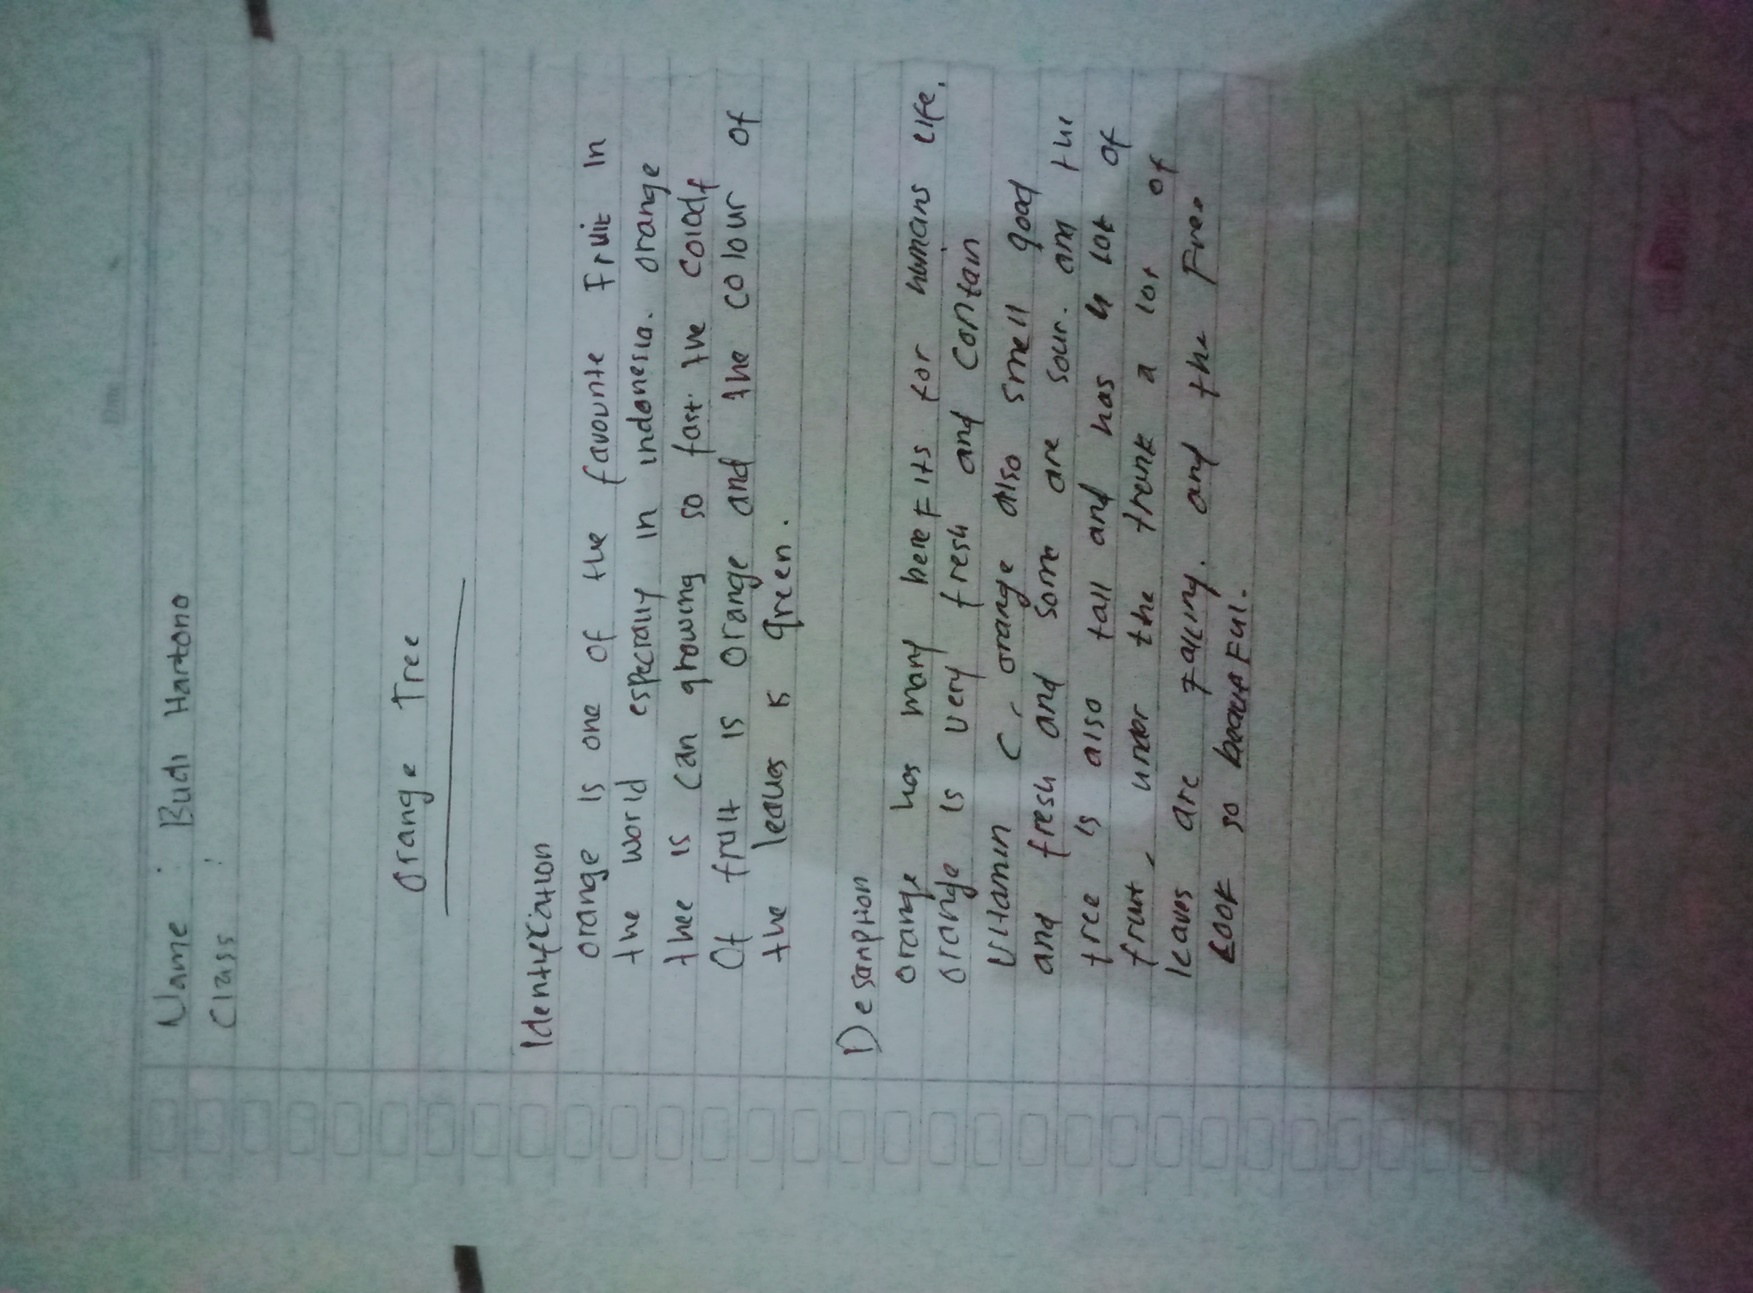 Name : Budi Hartono
Class :
Orange Tree
Identification
orange is one of the favourite Fruit in
the world especially in indonesia. orange
thee is can growing so fast. the
Of fruit is orange and the colour of
the leaves is green.
Description
orange has many benefits for humans life,
orange is very fresh and contain
vitamin C, orange also smell good
and fresh and some are sour. and the
tree is also tall and has a lot of
fruit, under the trunk a lot of
leaves are falling. and the Free
Look so beautiful.